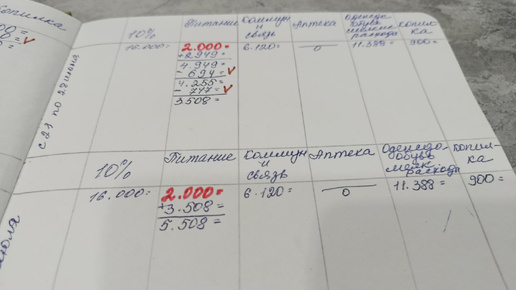 Копилка
с 21 по 28 июня
10%
Питание
Коммун
и
связь
Аптека
Одежда
обувь
мелкие
расходы
Копил-
ка
2.000=
6.120=
0
11.388=
900=
+2949=
4.949=
- 694= ✓
4.255=
- 747= ✓
3.508=
10%
Питание
Коммун
и
связь
Аптека
Одежда
обувь
мелк
расходы
Копил-
ка
16.000=
2.000=
6.120=
0
11.388=
900=
+3.508=
5.508=
июля